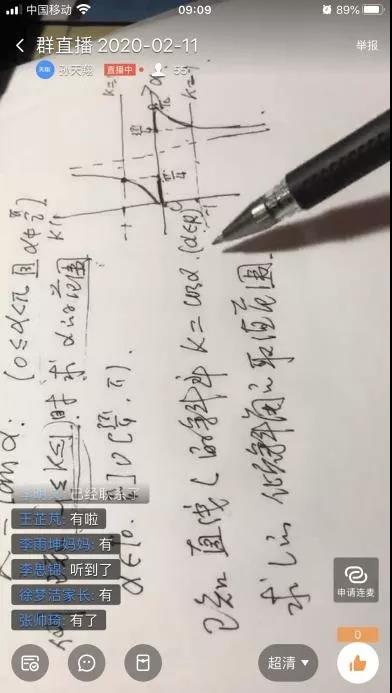 中国移动
09:09
89%
群直播 2020-02-11
举报
天翔
孙天翔
直播中
55
= tanα. (0≤α<π 且 α≠π/2)
≤k≤1 时 求 α 的范围
α∈[0, π/4]∪[3π/4, π).
已知直线 l 的斜率 k = cosα. (α∈R)
求 l 的倾斜角的取值范围.
已经联系了
王芷芃: 有啦
李雨坤妈妈: 有
李思锦: 听到了
徐梦洁家长: 有
张帅琦: 有了
申请连麦
0
超清